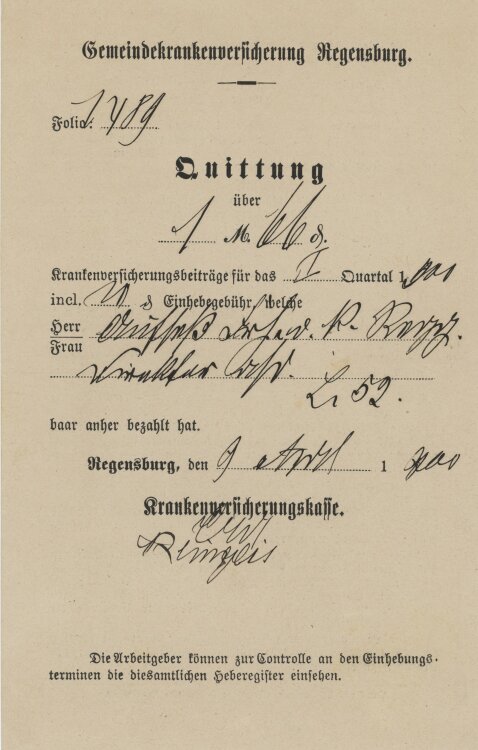 Gemeindekrankenversicherung Regensburg.
Folio: 1489
Quittung
über
1 M. 66 ₰.
Krankenversicherungsbeiträge für das I Quartal 1900
incl. ₰ Einhebegebühr, welche
Herr
Frau
Direktor
52.
baar anher bezahlt hat.
Regensburg, den 9 April 1900
Krankenversicherungskasse.
Die Arbeitgeber können zur Controlle an den Einhebungs-
terminen die diesamtlichen Heberegister einsehen.